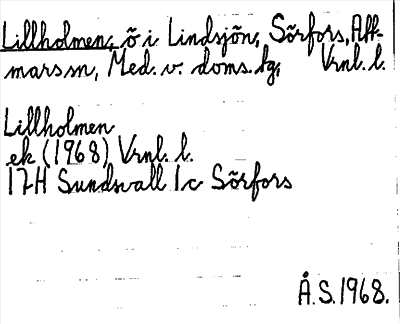 Lillholmen, ö i Lindsjön, Sörfors, Att-
marssn, Med. v. doms. hg, Vrnl. l.
Lillholmen
ek (1968) Vrnl. l.
17H Sundsvall 1c Sörfors
Å.S. 1968.